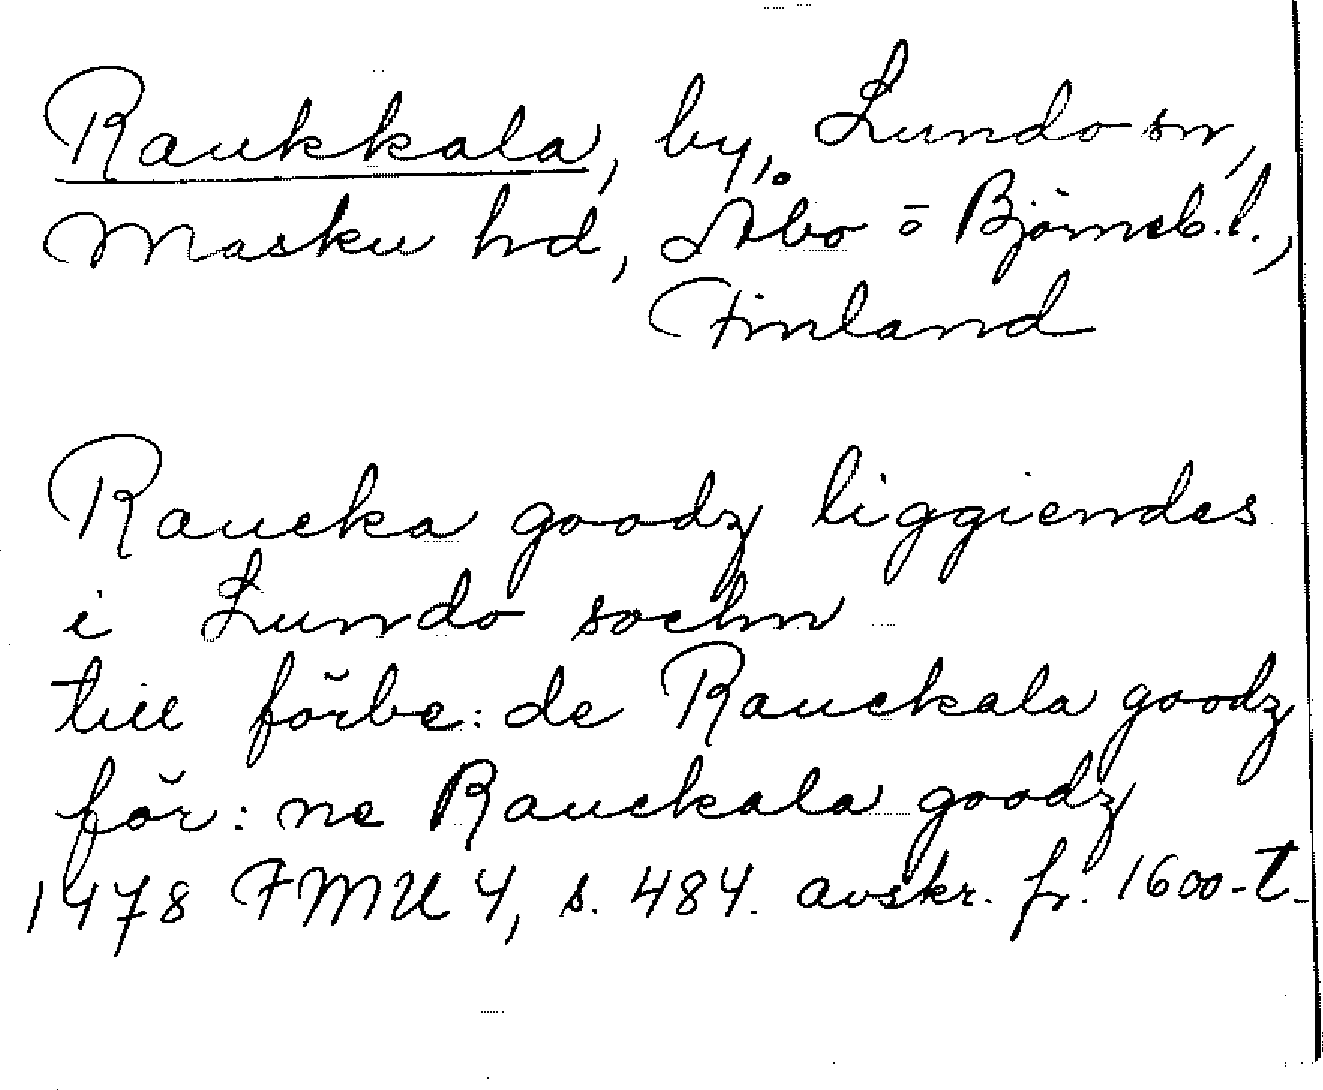 Raukkala, by, Lundo sn,
Masku hd, Åbo o Björneb. l.,
Finland
Raucka goodz liggiendes
i Lundo sochn
till förbe: de Rauckala goodz
för: ne Rauckala goodz
1478 FMU 4, s. 484. avskr. fr. 1600-t.